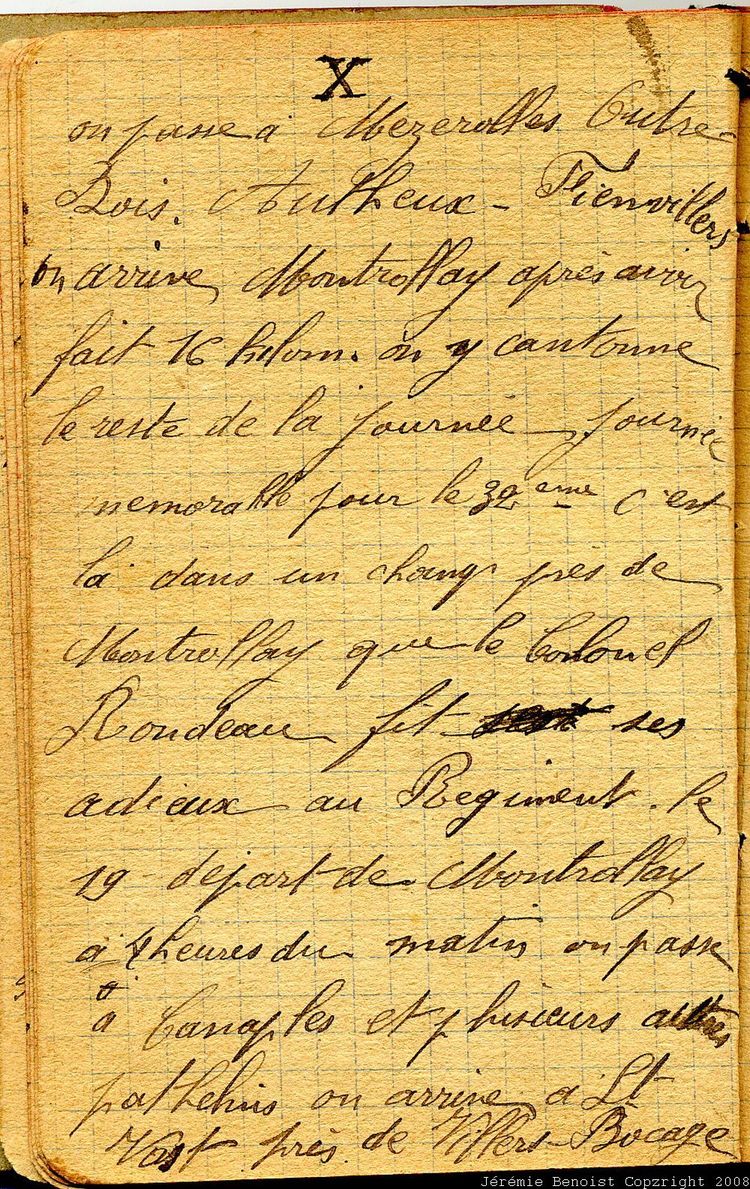 X
on passe a Mezerolles Outre-
Bois. Autheux - Fienvillers
on arrive Montrollay après avoir
fait 16 kilom. on y cantonne
le reste de la journée, journée
memorable pour le 32eme c'est
là dans un champ près de
Montrollay que le Colonel
Rondeau fit ses
adieux au Regiment. le
19 depart de Montrollay
a 4 heures du matin on passe
à Canaples et plusieurs autres
pathelins on arrive a St
Vast près de Villers-Bocage
Jérémie Benoist Copzright 2008